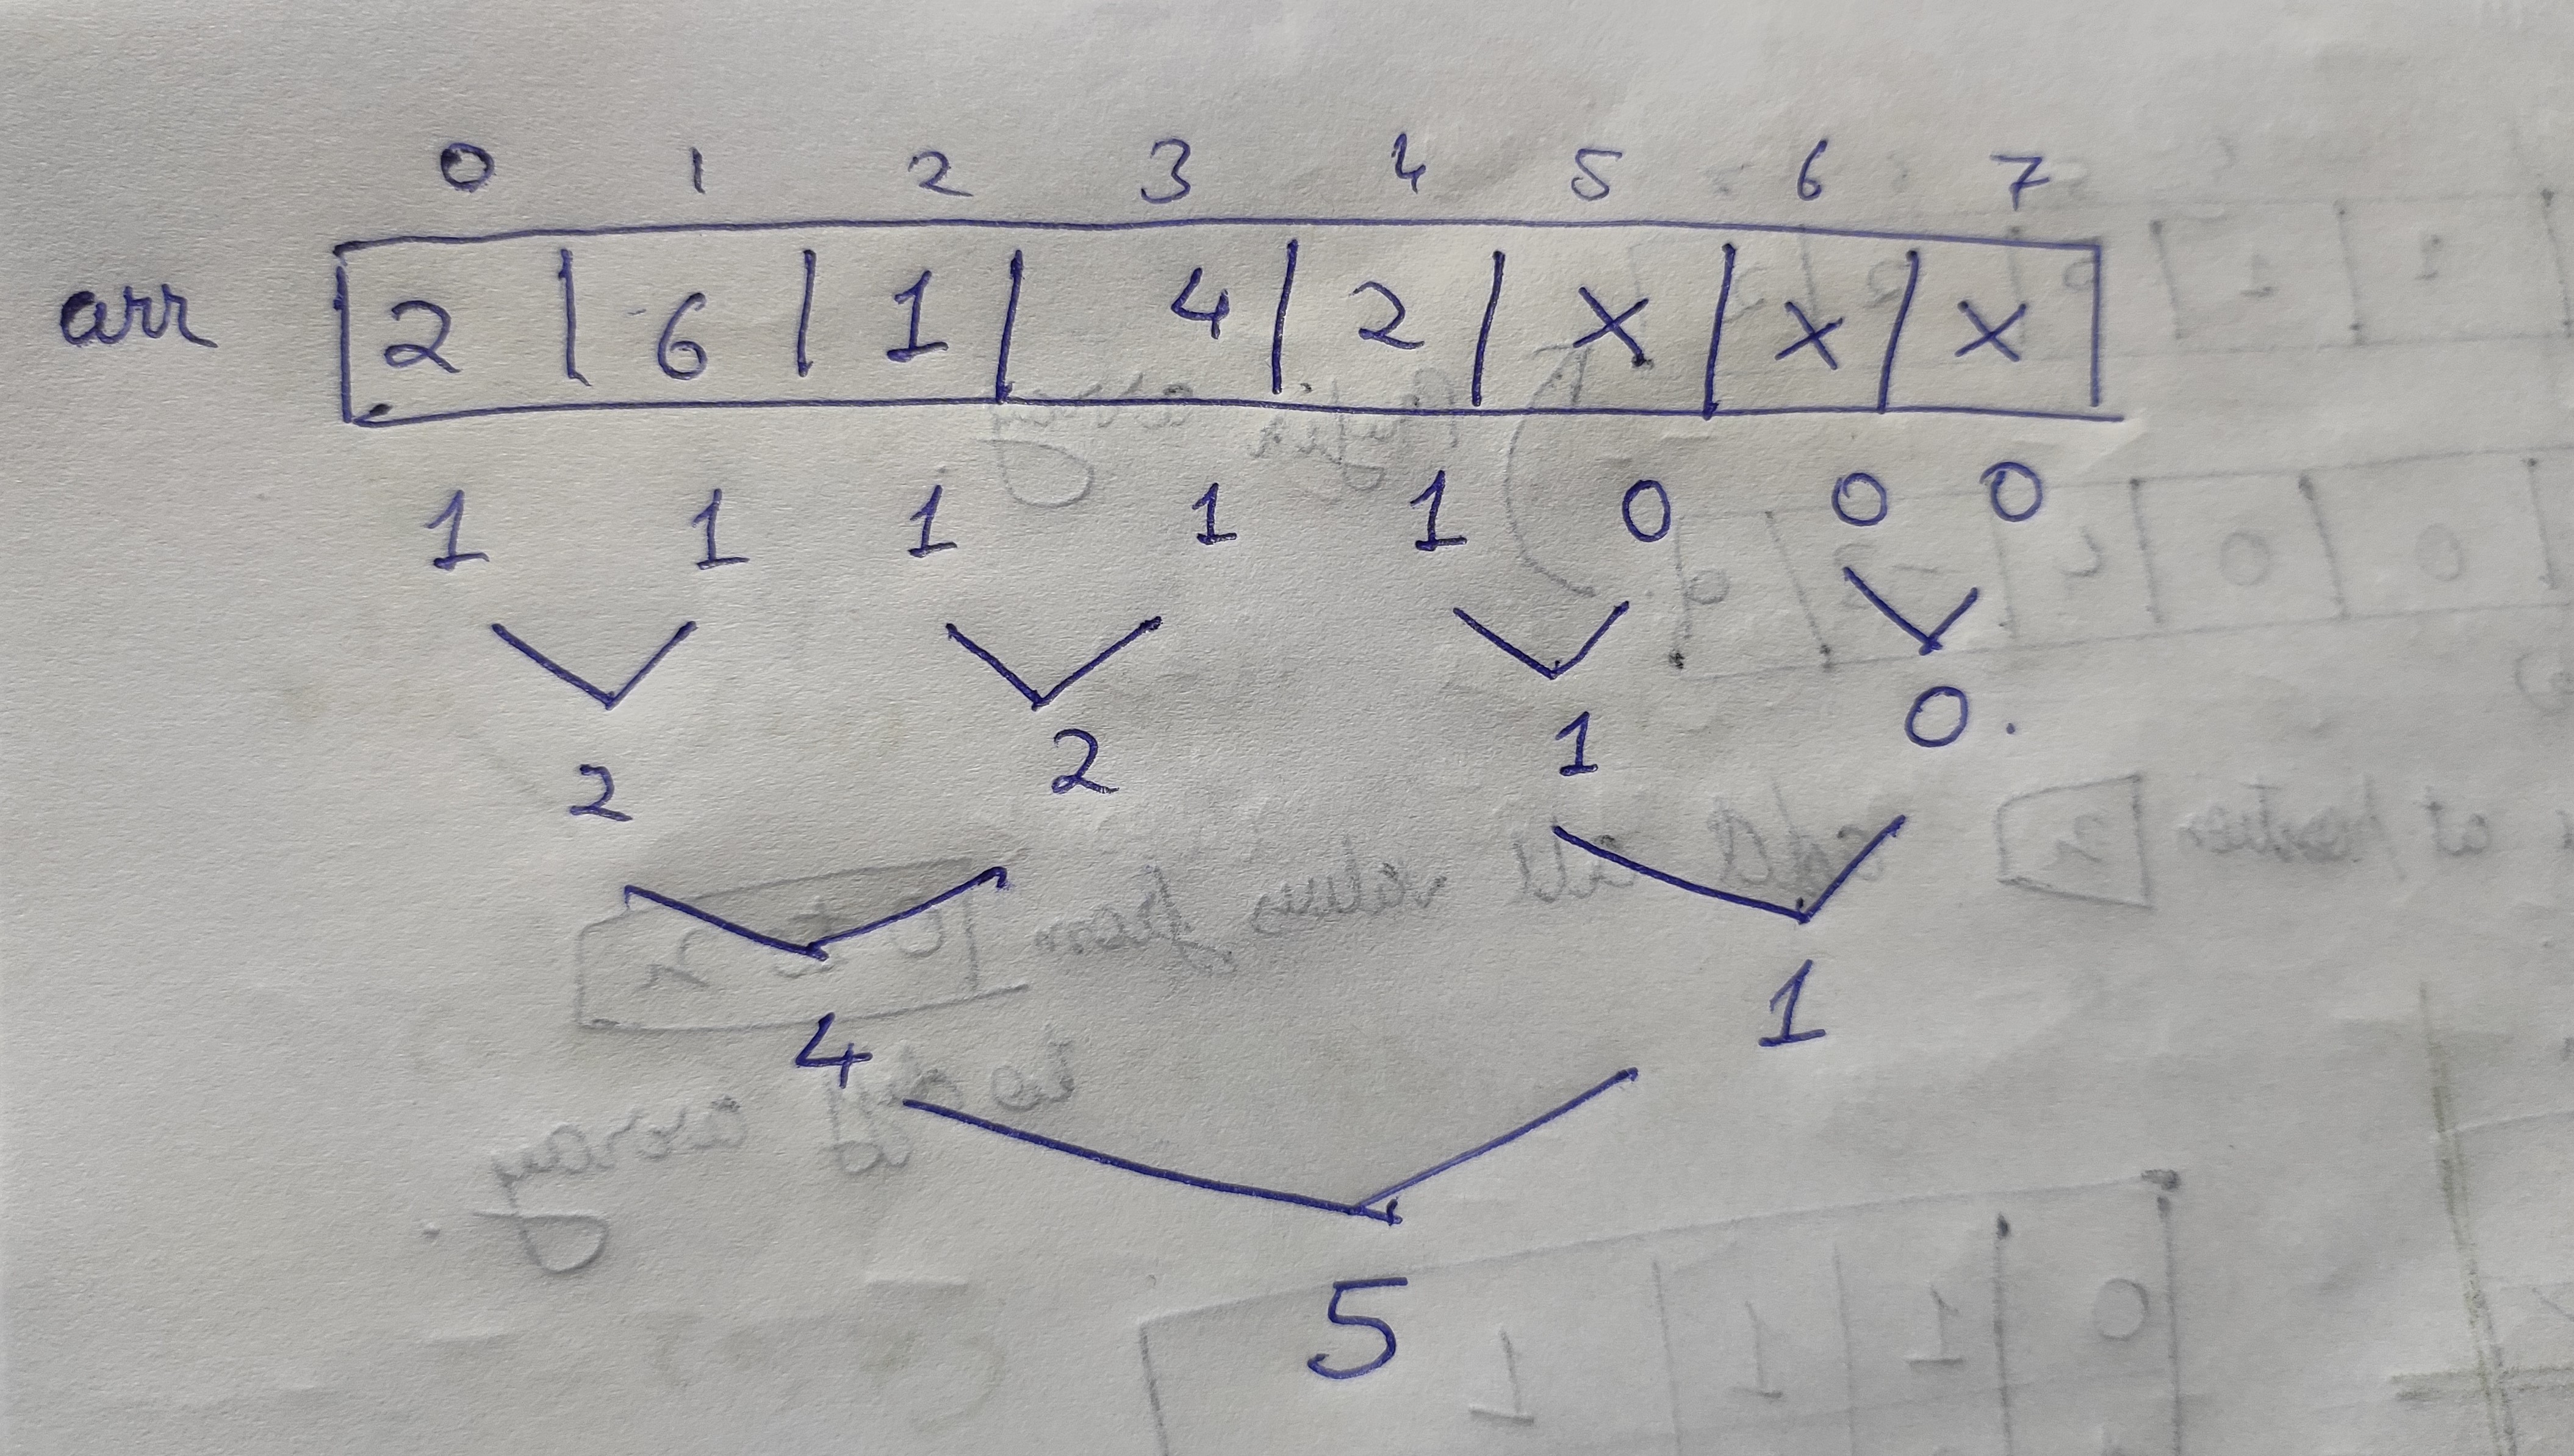 0 1 2 3 4 5 6 7
arr 2 6 1 4 2 X X X
1 1 1 1 1 0 0 0
2 2 1 0.
4 1
5